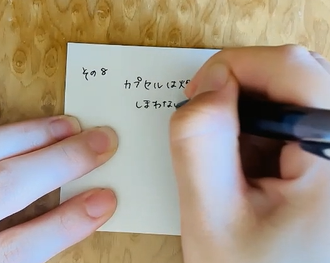 その8
カプセルは
しまわない